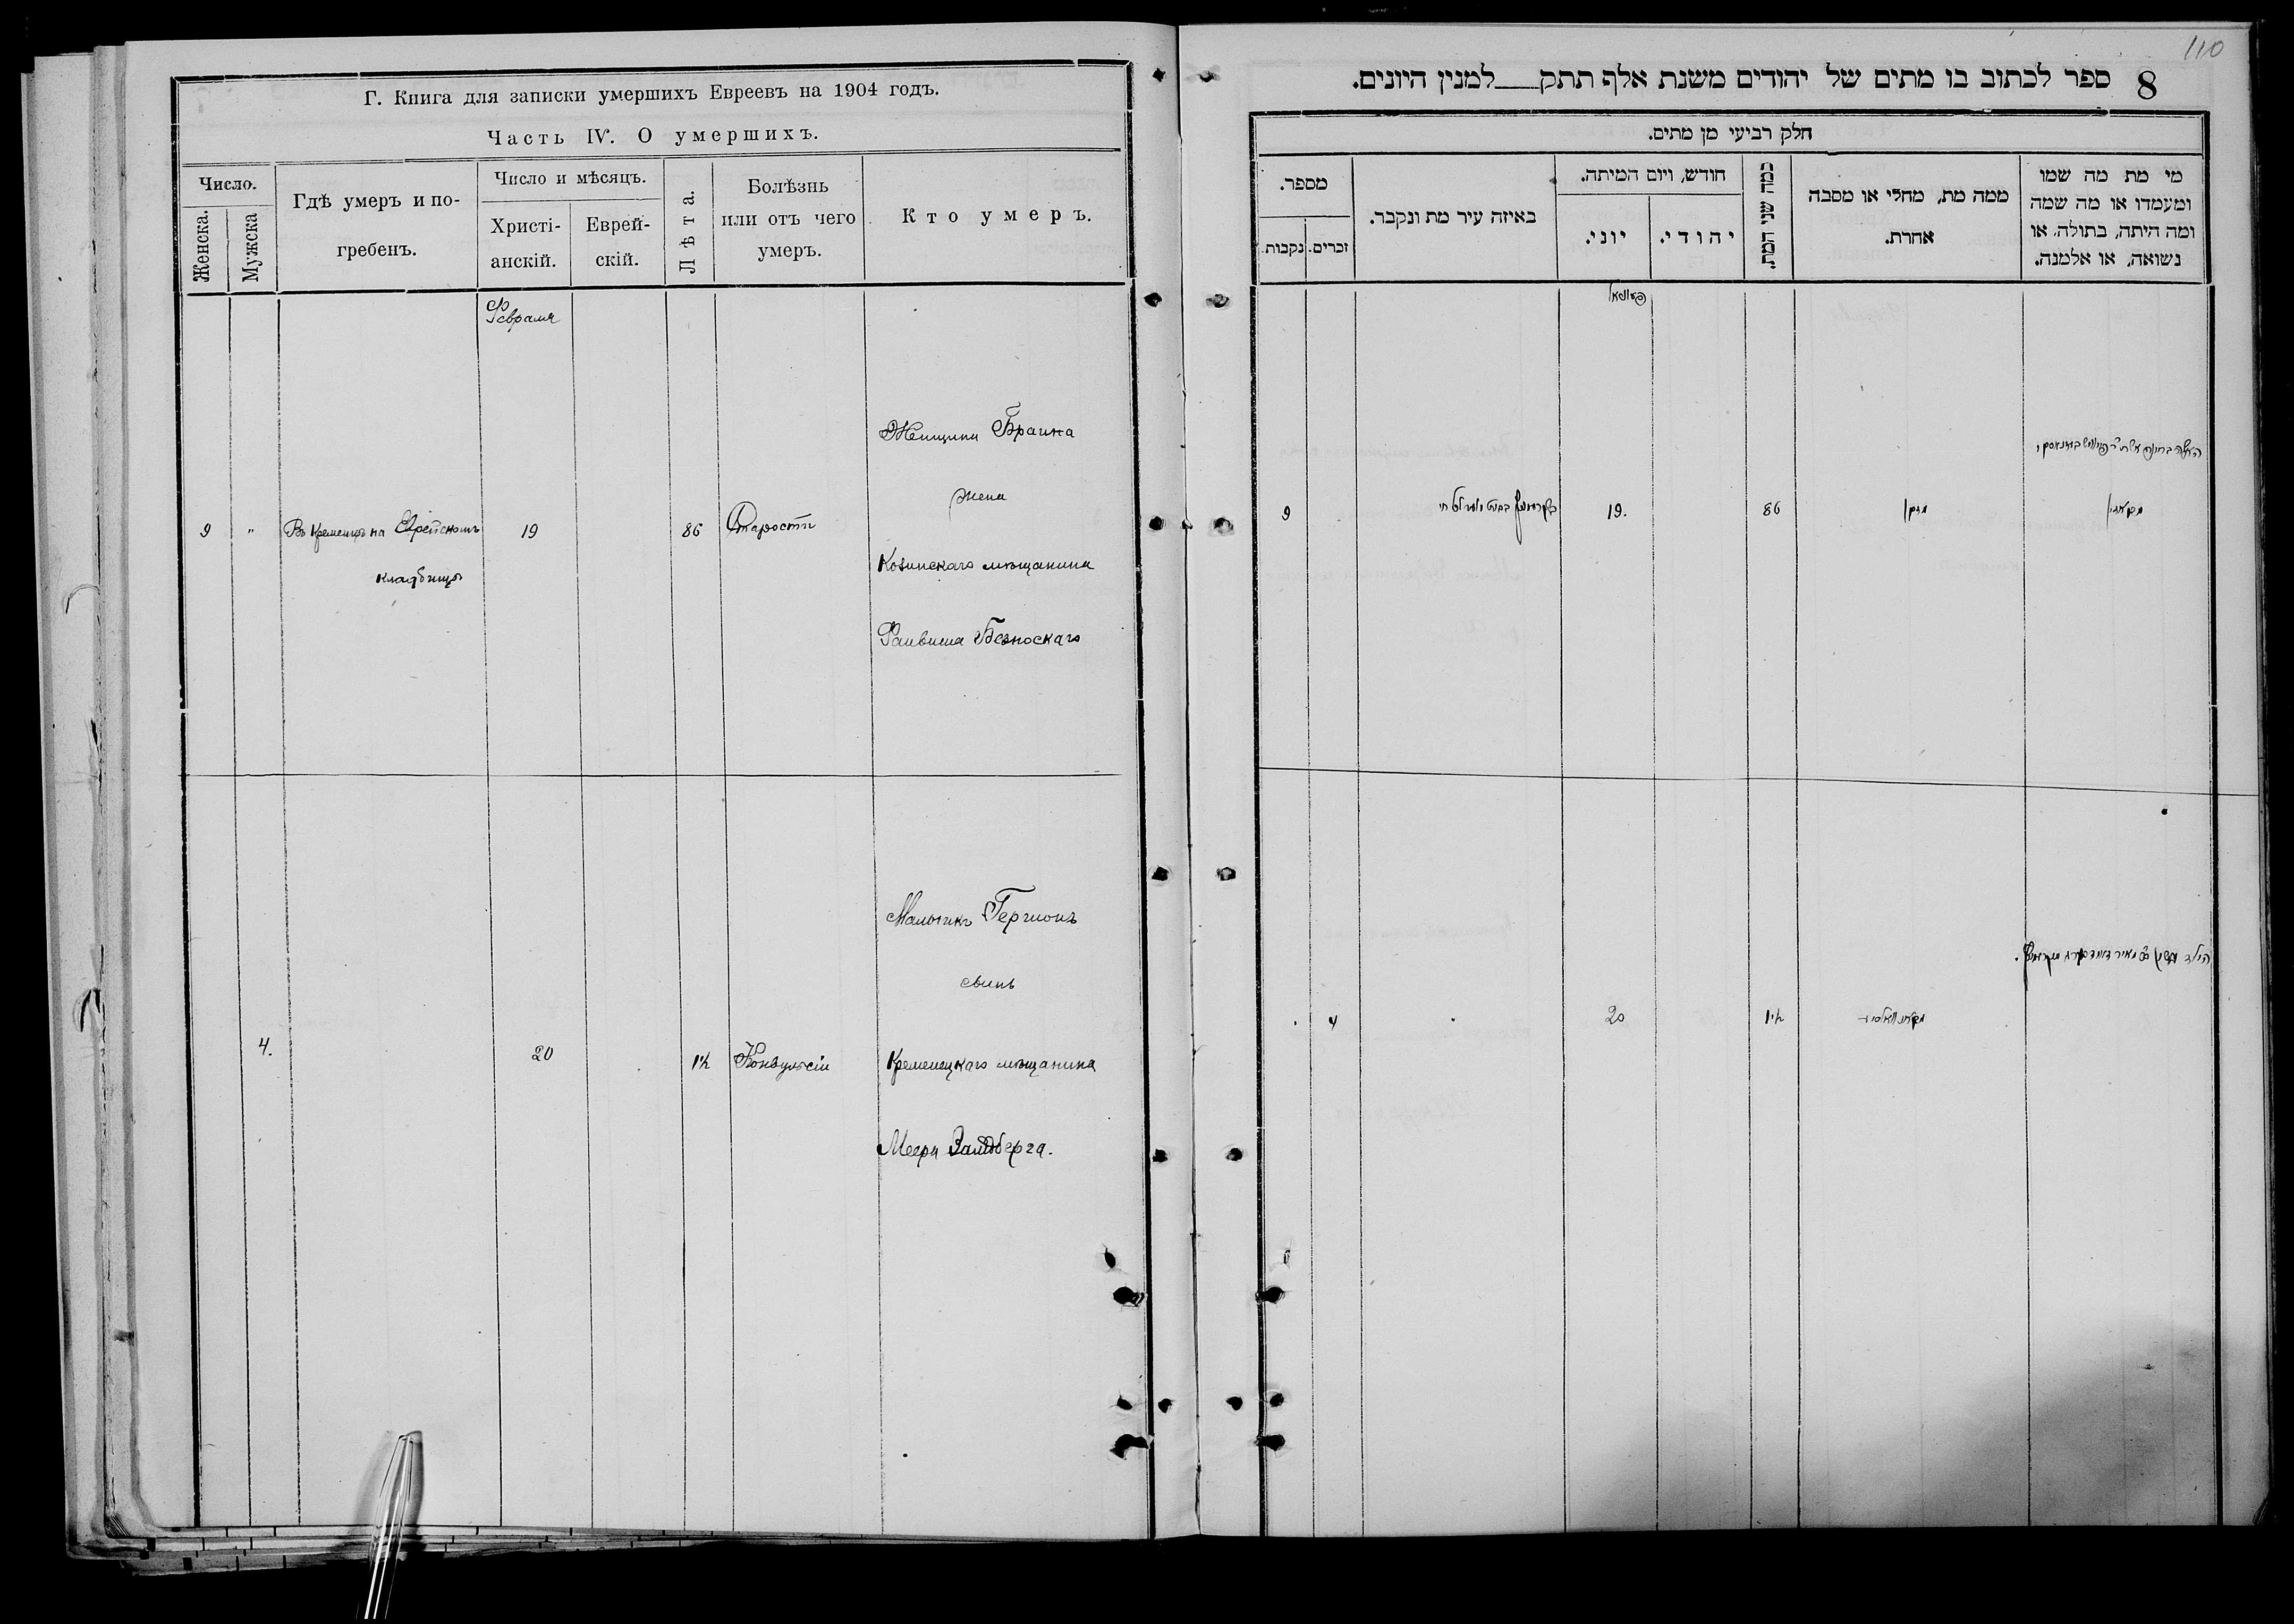 Г. Книга для записки умершихъ Евреевъ на 1904 годъ.
Часть IV. О умершихъ.
Число.
Женска.
Мужска
Гдѣ умеръ и по-
гребенъ.
Число и мѣсяцъ.
Христі-
анскій.
Еврей-
скій.
Лѣта.
Болѣзнь
или отъ чего
умеръ.
Кто умеръ.
Февраля
9 " Въ Кременцѣ на Еврейскомъ
кладбищѣ
19
86
Старости
Женщина Браина
жена
Козинскаго мѣщанина
Фаивиша Безноскаго
4.
20
1½
Конвульсіи
Мальчикъ Гершонъ
сынъ
Кременецкаго мѣщанина
Меера Замдберга.
110
8 ספר לכתוב בו מתים של יהודים משנת אלף תתק למנין היונים.
חלק רביעי מן מתים.
מי מת מה שמו
ומעמדו או מה שמה
ומה היתה, בתולה, או
נשואה, או אלמנה.
ממה מת, מחלי או מסבה
אחרת.
כמה שני המת.
חודש, ויום המיתה.
יהודי.
יוני.
באיזה עיר מת ונקבר.
מספר.
זכרים.
נקבות.
מזקן
86
19.
9
הילד
1½
20
4